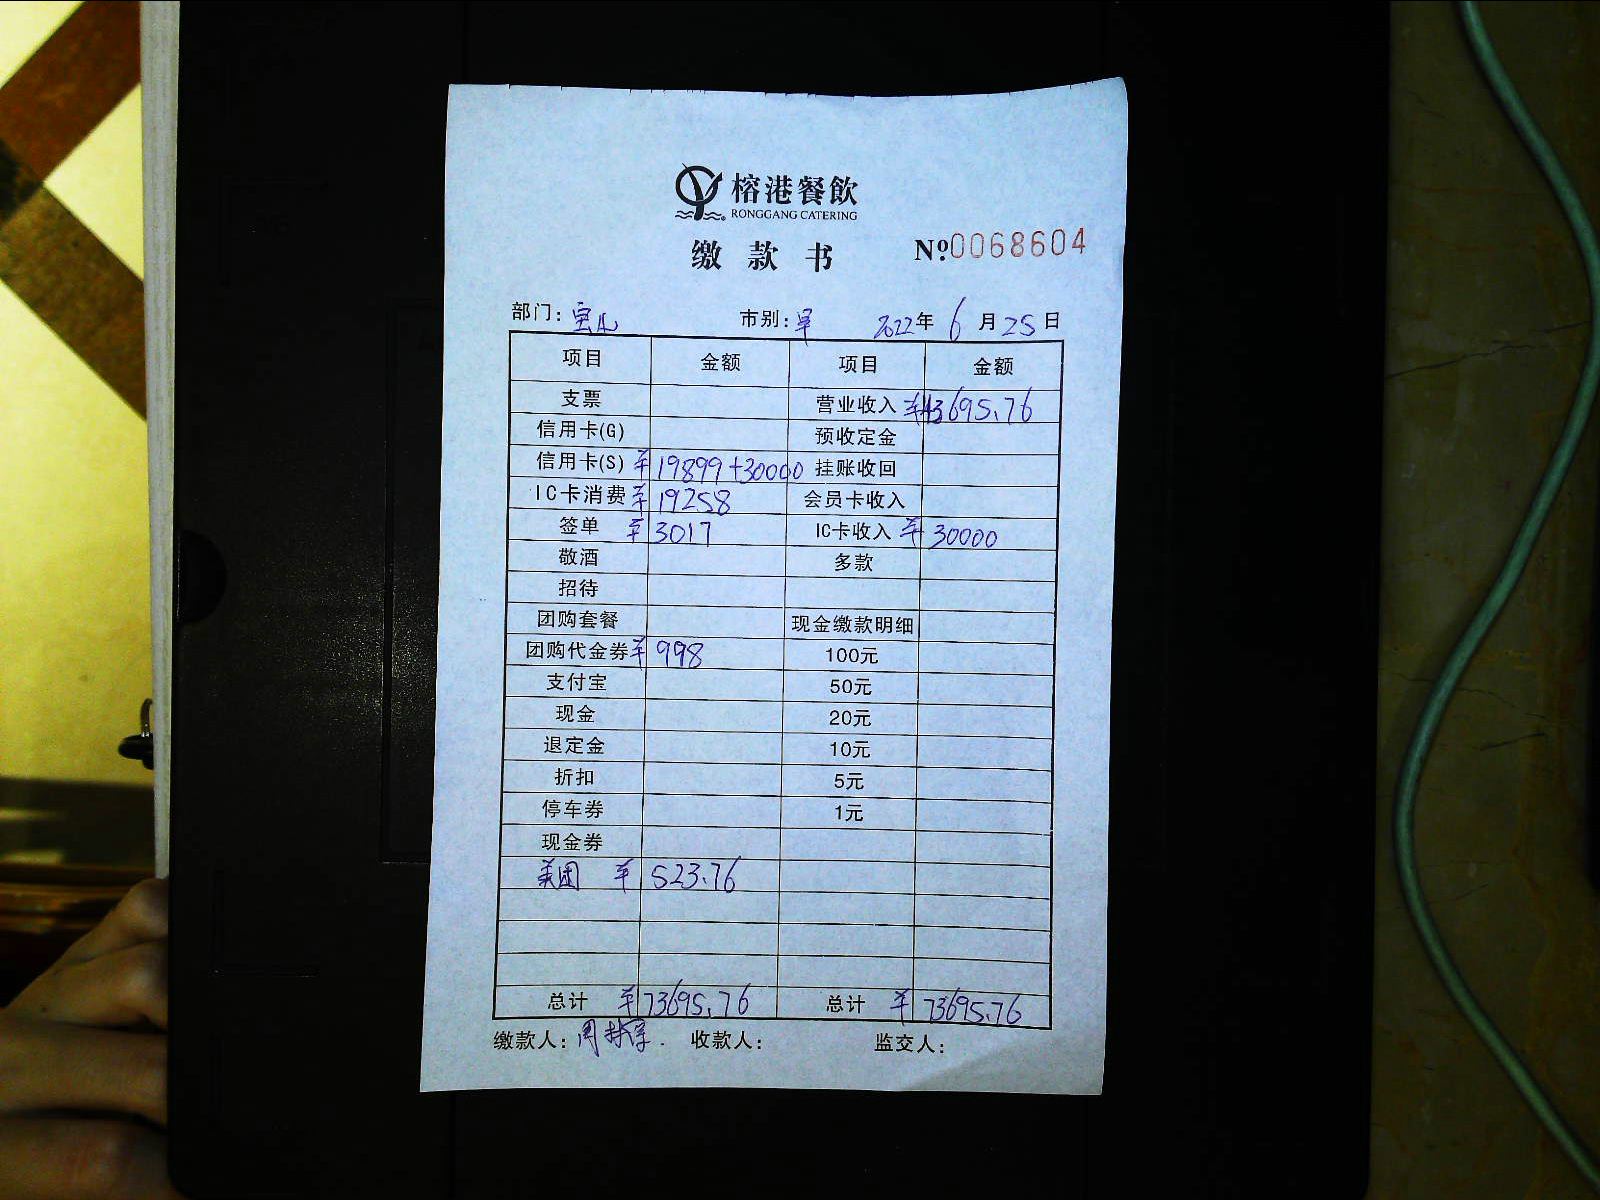 榕港餐飲
RONGGANG CATERING
缴款书 №0068604
部门: 市别: 2022年 6月25日
项目 金额 项目 金额
支票 营业收入 ¥43695.76
信用卡(G) 预收定金
信用卡(S) ¥19899+30000 挂账收回
IC卡消费 ¥19258 会员卡收入
签单 ¥3017 IC卡收入 ¥30000
敬酒 多款
招待
团购套餐 现金缴款明细
团购代金券 ¥998 100元
支付宝 50元
现金 20元
退定金 10元
折扣 5元
停车券 1元
现金券
美团 ¥523.76
总计 ¥73695.76 总计 ¥73695.76
缴款人: 收款人: 监交人: